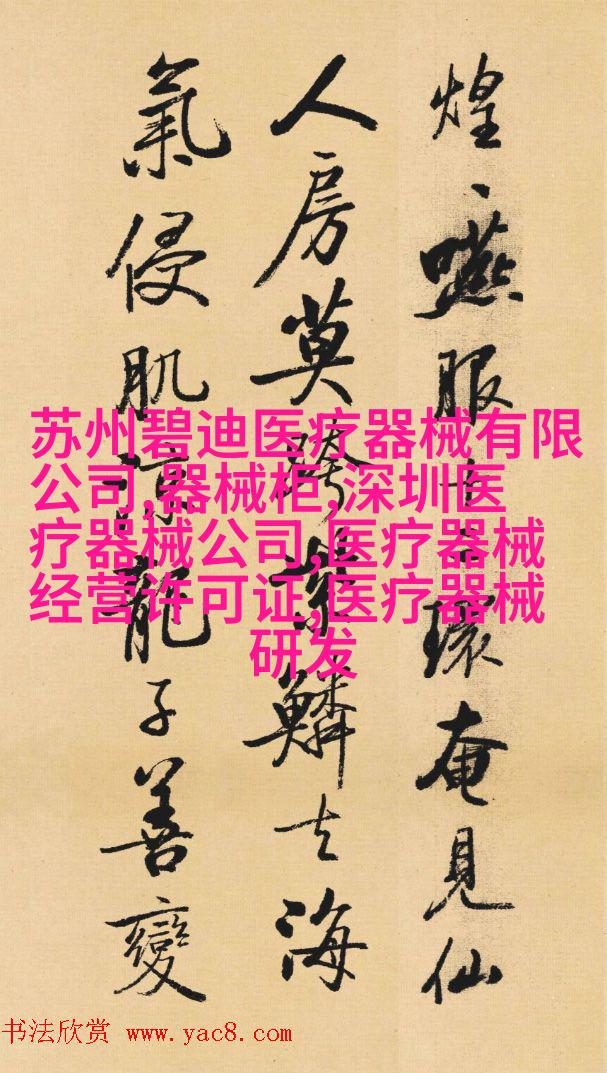 煌〻嚥服十二環奄見仙
人房莫跨紫鱗去海
氣侵肌涼龍子善變
苏州碧迪医疗器械有限
公司,器械柜,深圳医
疗器械公司,医疗器械
经营许可证,医疗器械
研发
书法欣赏 www.yac8.com